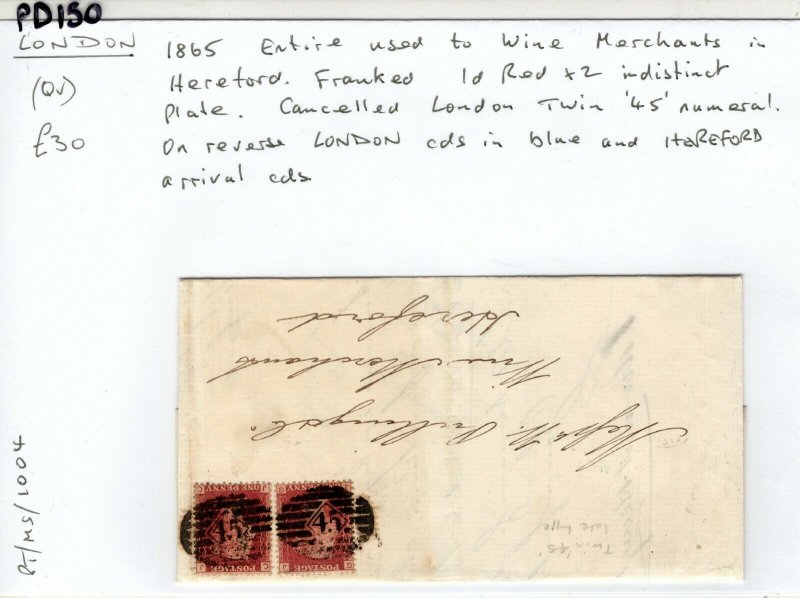 PD150
LONDON
(QV)
£30
1865 Entire used to Wine Merchants in
Hereford. Franked 1d Red x2 indistinct
plate. Cancelled London Twin '45' numeral.
On reverse LONDON cds in blue and HEREFORD
arrival cds
PT/MS/1004
Messrs W.
Wine Merchants
Hereford
ONE PENNY
POSTAGE
45
POSTAGE
45
Twin '45'
late type